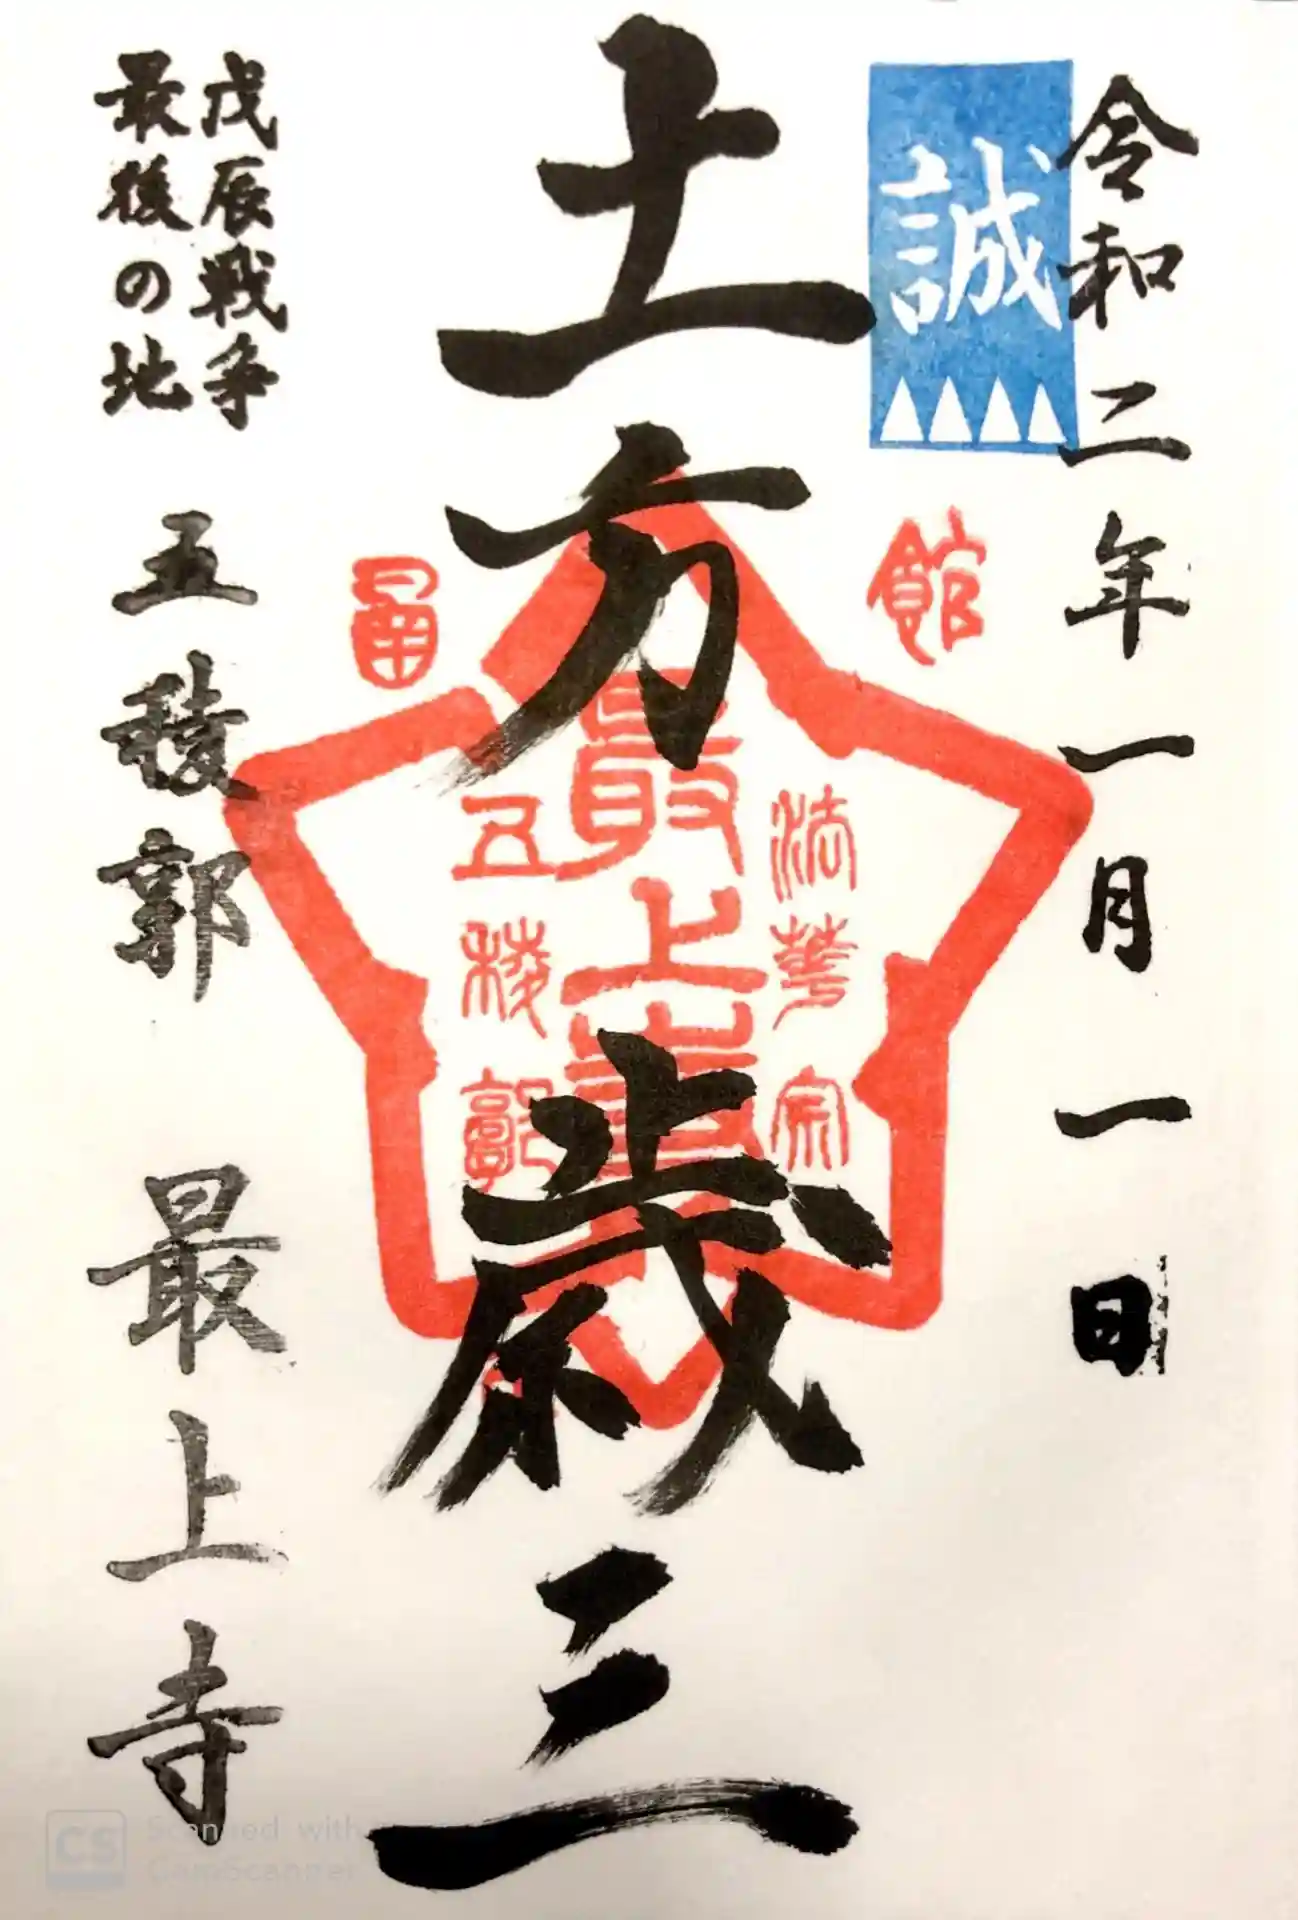 令和二年一月一日
誠
館
土方歳三
法華宗
最上寺
五稜郭
戊辰戦争
最後の地
五稜郭 最上寺
CS
Scanned with
CamScanner